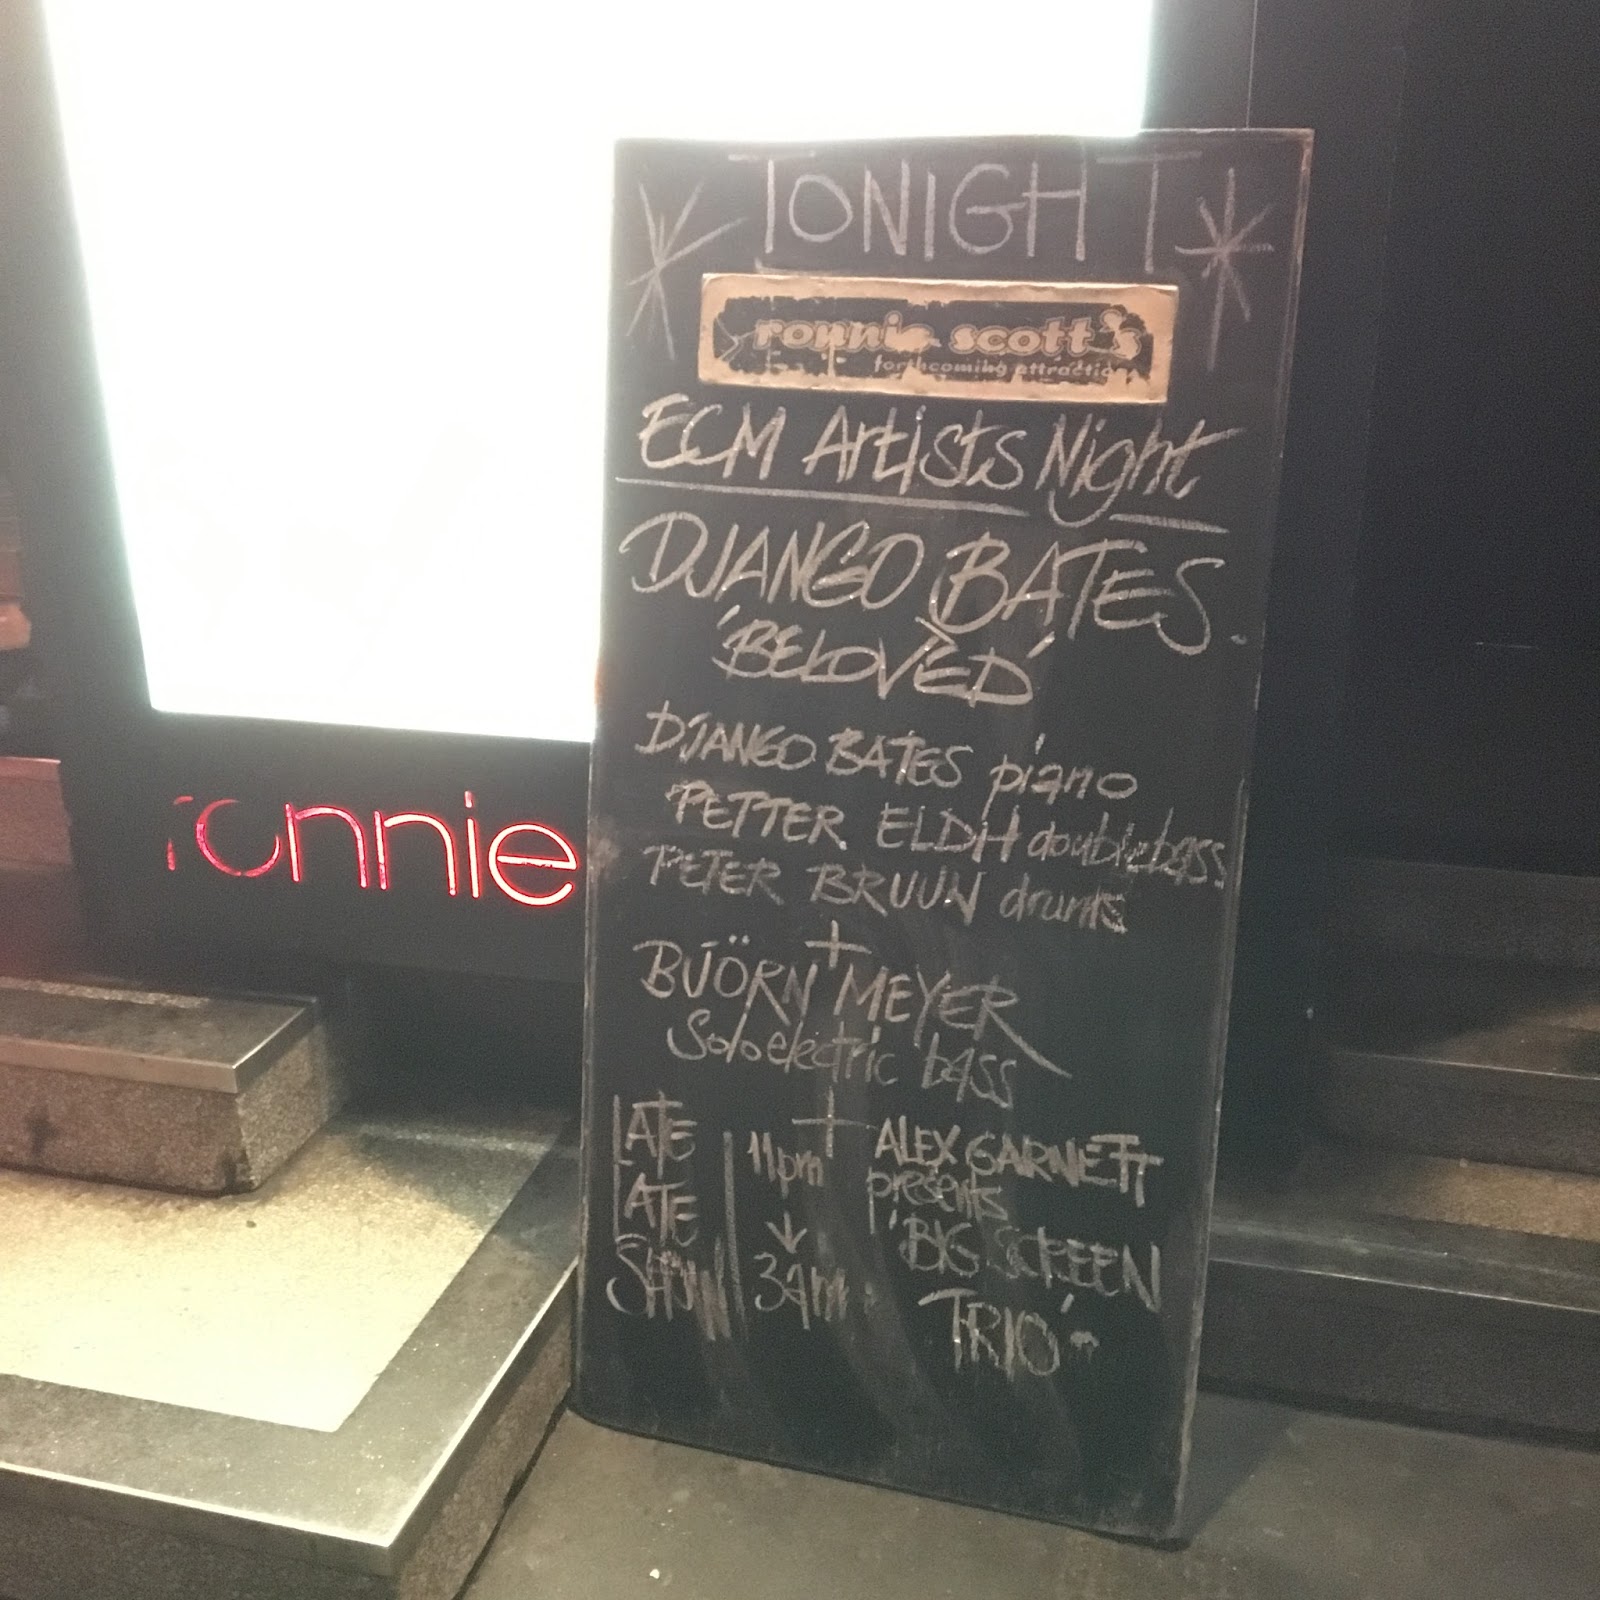 TONIGHT
ronnie scott's
forthcoming attractions
ECM Artists Night
DJANGO BATES.
'BELOVED'
DJANGO BATES piano
PETTER ELDH double bass
PETER BRUUN drums
+
BJÖRN MEYER
Solo electric bass
+
LATE LATE SHOW
11pm ↓ 3am
ALEX GARNETT
presents
'BIG SCREEN
TRIO'
ronnie